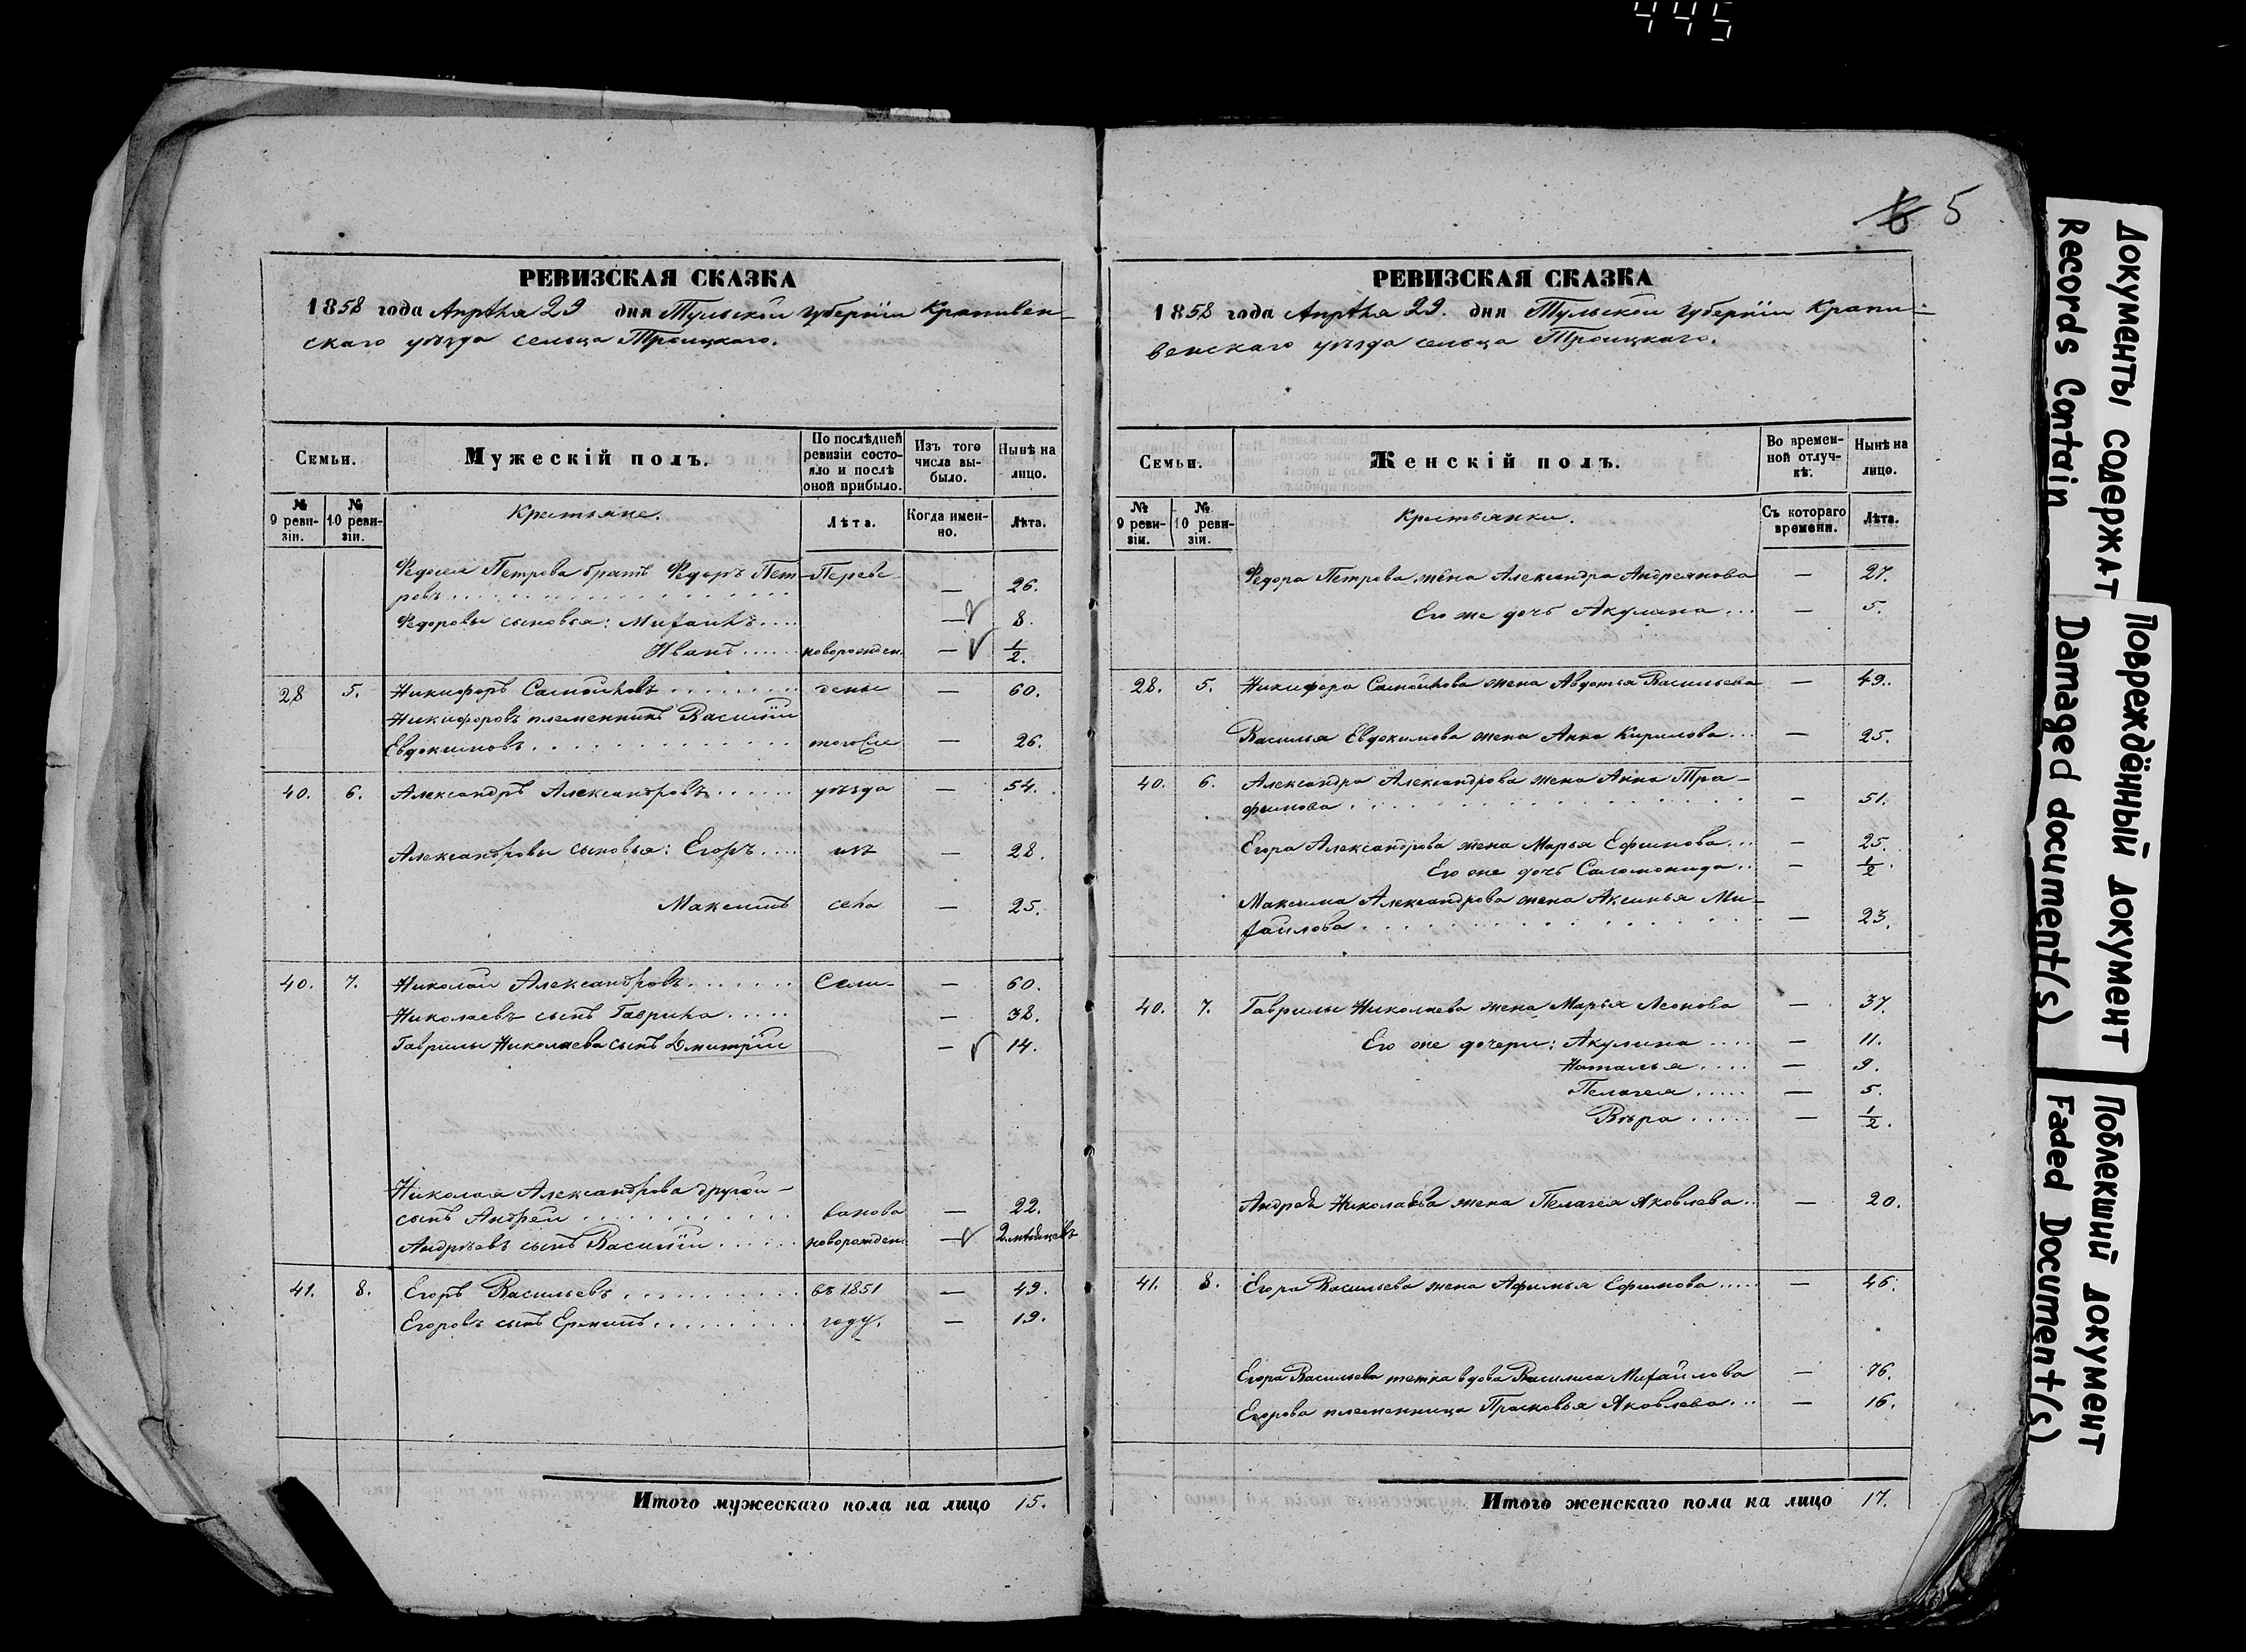 445
6 5
РЕВИЗСКАЯ СКАЗКА
1858 года Апрѣля 29 дня Тульской губерніи Крапивен-
скаго уѣзда сельца Троицкаго.
Семьи.
Мужескій полъ.
По послѣдней ревизіи состо-
яло и послѣ оной прибыло.
Изъ того числа вы-
было.
Нынѣ на лицо.
№ 9 реви-
зіи.
№ 10 реви-
зіи.
Крестьяне.
Лѣта.
Когда имен-
но.
Лѣта.
Федосея Петрова братъ Федоръ Пет- Переве
ровъ — 26.
Федоровы сыновья: Михайла — 8.
Иванъ новорожден. — 1/2.
28 5. Никифоръ Самойловъ дены — 60.
Никифоровъ племянникъ Василій
Евдокимовъ того же — 26.
40. 6. Александръ Александровъ уѣзда — 54.
Александровы сыновья: Егоръ изъ — 28.
Максимъ села — 25.
40. 7. Николай Александровъ Сели- — 60.
Николаевъ сынъ Гаврила — 38.
Гаврилы Николаева сынъ Дмитрій — 14.
Николая Александрова другой
сынъ Андрей ванова — 22.
Андреевъ сынъ Василій новорожден. — 2 мѣсяцевъ
41. 8. Егоръ Васильевъ въ 1851 — 49.
Егоровъ сынъ году. — 19.
Итого мужескаго пола на лицо 15.
РЕВИЗСКАЯ СКАЗКА
1858 года Апрѣля 29. дня Тульской губерніи Крапи-
венскаго уѣзда сельца Троицкаго.
Семьи.
Женскій полъ.
Во времен-
ной отлуч-
кѣ.
Нынѣ на лицо.
№ 9 реви-
зіи.
№ 10 реви-
зіи.
Крестьянки.
Съ котораго времени.
Лѣта.
Федора Петрова жена Александра Андреянова — 27.
Его же дочь Акулина — 5.
28. 5. Никифора Самойлова жена Авдотья Васильева — 49.
Василья Евдокимова жена Анна Кирилова — 25.
40. 6. Александра Александрова жена Анна Тра-
фимова — 51.
Егора Александрова жена Марья Ефимова — 25.
Его же дочь Саломонида — 1/2.
Максима Александрова жена Аксинья Ми-
хайлова — 23.
40. 7. Гаврилы Николаева жена Марья Леонова — 37.
Его же дочери: Акулина — 11.
Наталья — 9.
Пелагея — 5.
Вѣра — 1/2.
Андрея Николаева жена Пелагея Яковлева — 20.
41. 8. Егора Васильева жена Афимья Ефимова — 46.
Егора Васильева тетка вдова Василиса Михайлова — 76.
Егорова племянница Прасковья Яковлева — 16.
Итого женскаго пола на лицо 17.
Документы содержат
Records Contain
Повреждённый документ
Damaged document(s)
Поблекший документ
Faded Document(s)